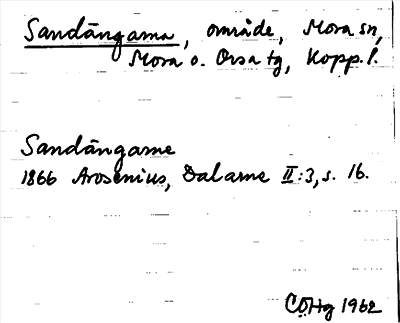 Sandängarna, område, Mora sn,
Mora o. Orsa tg, Kopp. l.
Sandängarne
1866 Arosenius, Dalarne II:3, s. 16.
CÖHg 1962